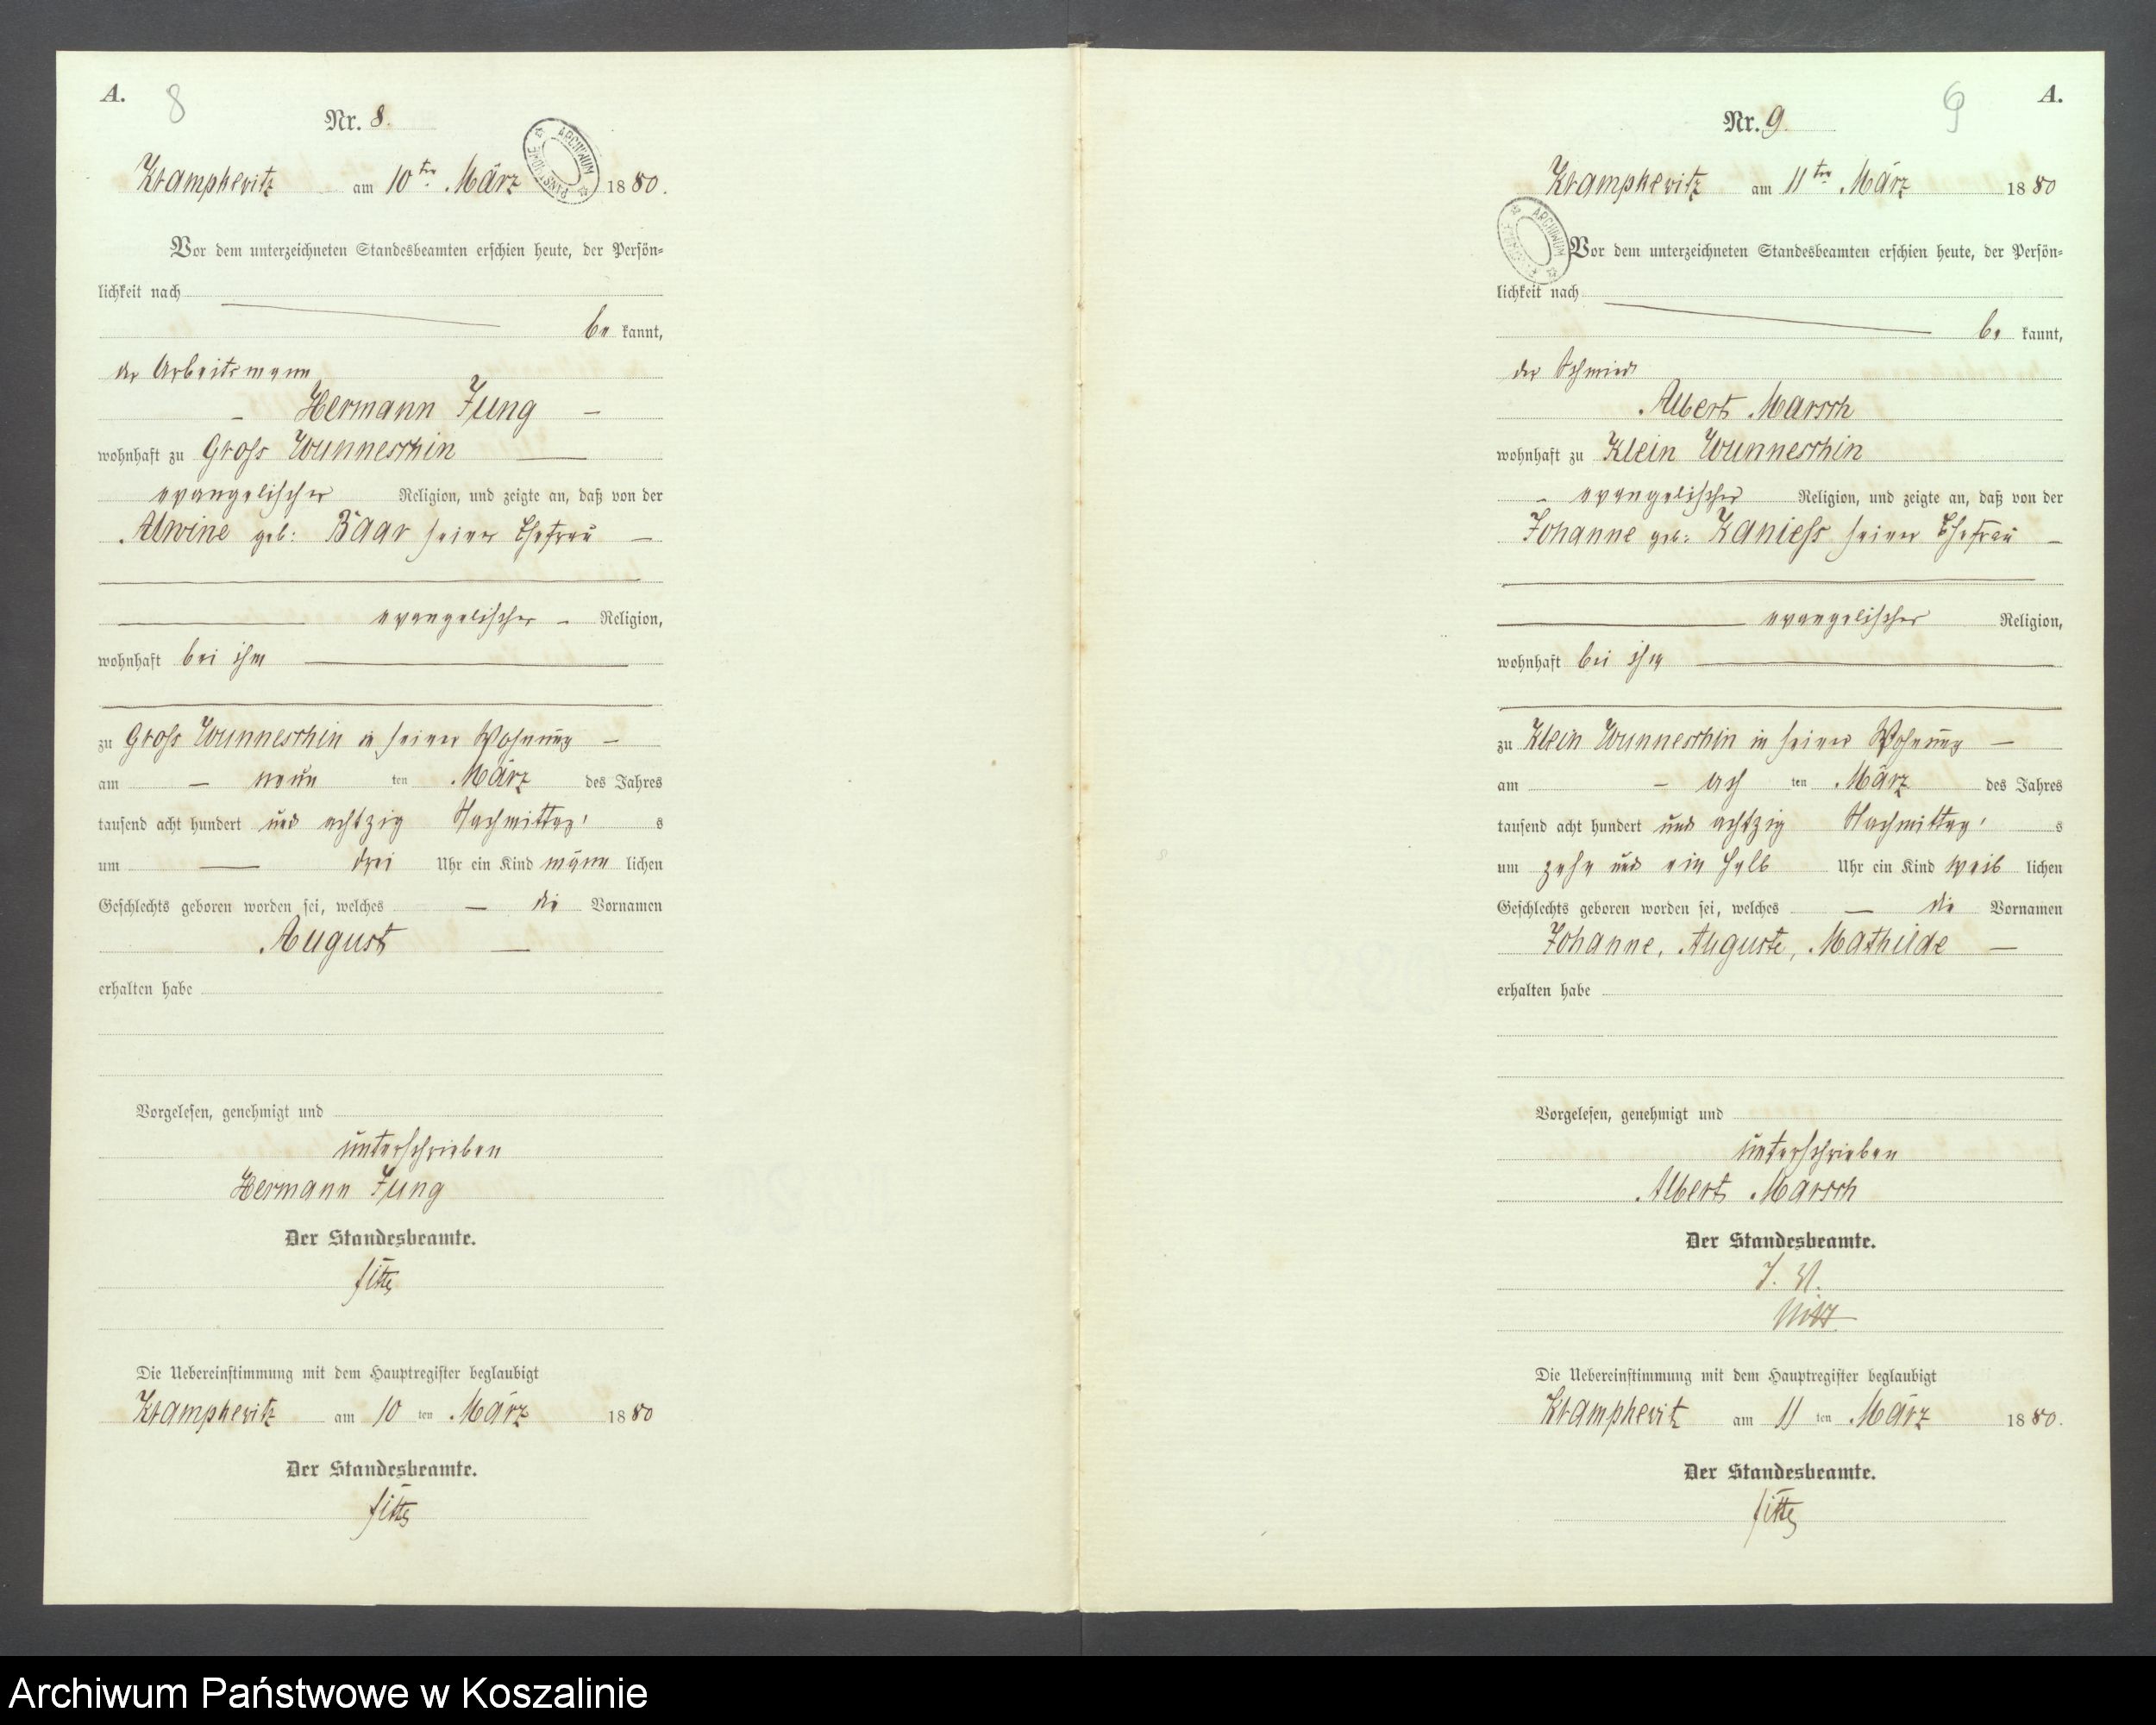 A.
8
Nr. 8.
Krampkewitz am 10ten März 1880.
Vor dem unterzeichneten Standesbeamten erschien heute, der Persön-
lichkeit nach
be kannt,
der Arbeitsmann
- Hermann Jung -
wohnhaft zu Gross Wunneschin
evangelischer Religion, und zeigte an, daß von der
Alwine geb: Baar seiner Ehefrau -
evangelischer - Religion,
wohnhaft bei ihm
zu Gross Wunneschin in seiner Wohnung -
am - neun ten März des Jahres
tausend acht hundert und achtzig Nachmittag's
um drei Uhr ein Kind männ lichen
Geschlechts geboren worden sei, welches - die Vornamen
August -
erhalten habe
Vorgelesen, genehmigt und
unterschrieben
Hermann Jung
Der Standesbeamte.
Die Uebereinstimmung mit dem Hauptregister beglaubigt
Krampkewitz am 10 ten März 1880
Der Standesbeamte.
ARCHIWUM PAŃSTWOWE
A.
9
Nr. 9.
Krampkewitz am 11ten März 1880
Vor dem unterzeichneten Standesbeamten erschien heute, der Persön-
lichkeit nach
be kannt,
der Schmied
Albert Marsch
wohnhaft zu Klein Wunneschin
- evangelischer Religion, und zeigte an, daß von der
Johanne geb: Kaniess seiner Ehefrau -
evangelischer Religion,
wohnhaft bei ihm
zu Klein Wunneschin in seiner Wohnung -
am - ach ten März des Jahres
tausend acht hundert und achtzig Nachmittag's
um zehn und ein halb Uhr ein Kind weib lichen
Geschlechts geboren worden sei, welches - die Vornamen
Johanne, Auguste, Mathilde -
erhalten habe
Vorgelesen, genehmigt und
unterschrieben
Albert Marsch
Der Standesbeamte.
J. V.
Die Uebereinstimmung mit dem Hauptregister beglaubigt
Krampkewitz am 11 ten März 1880.
Der Standesbeamte.
ARCHIWUM PAŃSTWOWE
Archiwum Państwowe w Koszalinie